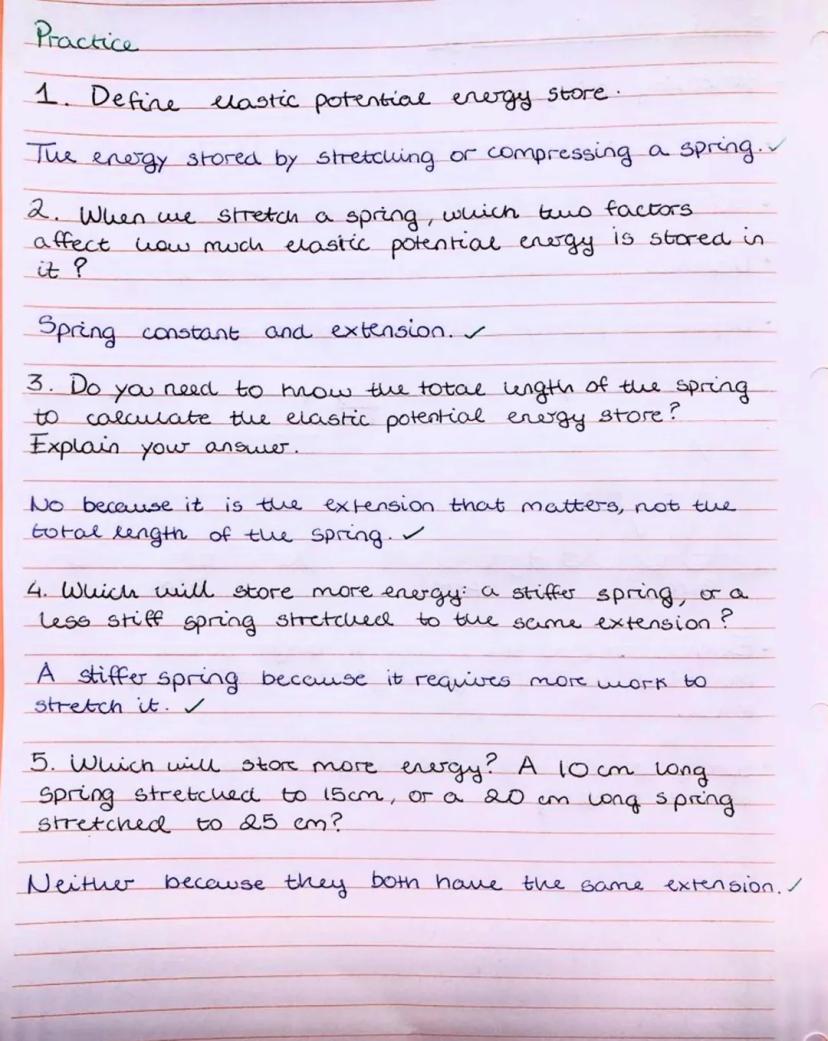 Practice
1. Define elastic potential energy store.
The energy stored by stretching or compressing a spring. ✓
2. When we stretch a spring, which two factors
affect how much elastic potential energy is stored in
it?
Spring constant and extension. ✓
3. Do you need to know the total length of the spring
to calculate the elastic potential energy store?
Explain your answer.
No because it is the extension that matters, not the
total length of the spring. ✓
4. Which will store more energy: a stiffer spring, or a
less stiff spring stretched to the same extension?
A stiffer spring because it requires more work to
stretch it. ✓
5. Which will store more energy? A 10 cm long
spring stretched to 15cm, or a 20 cm long spring
stretched to 25 cm?
Neither because they both have the same extension. ✓